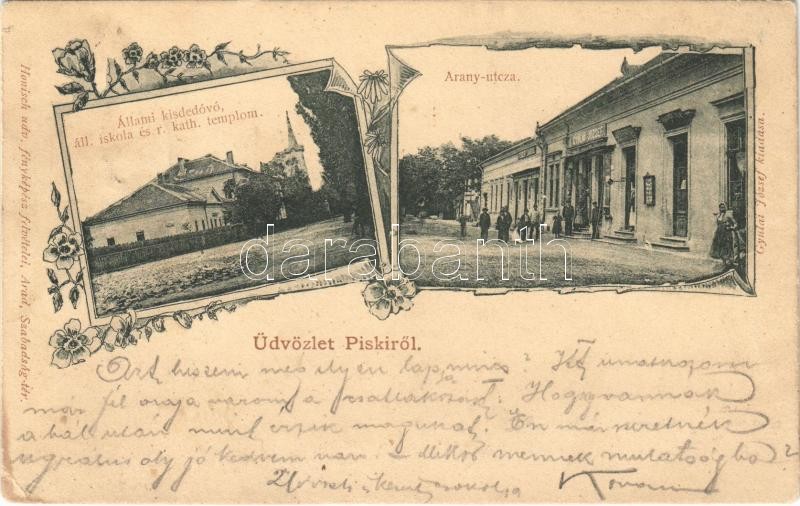 Állami kisdedóvó,
áll. iskola és r. kath. templom.
Arany-utcza.
Honisch udv. fényképész felvételei, Arad, Szabadság-tér.
Gyulai József kiadása.
darabanth
Üdvözlet Piskiről.
Azt hiszem még ilyen lapja nincs? Itt unatkozom
már fél órája várom a csatlakozást. Hogy vannak
a bál után mint érzik magukat. Én már szeretnék
ugrálni oly jó kedvem van. – Mikor mennek mulatságba?